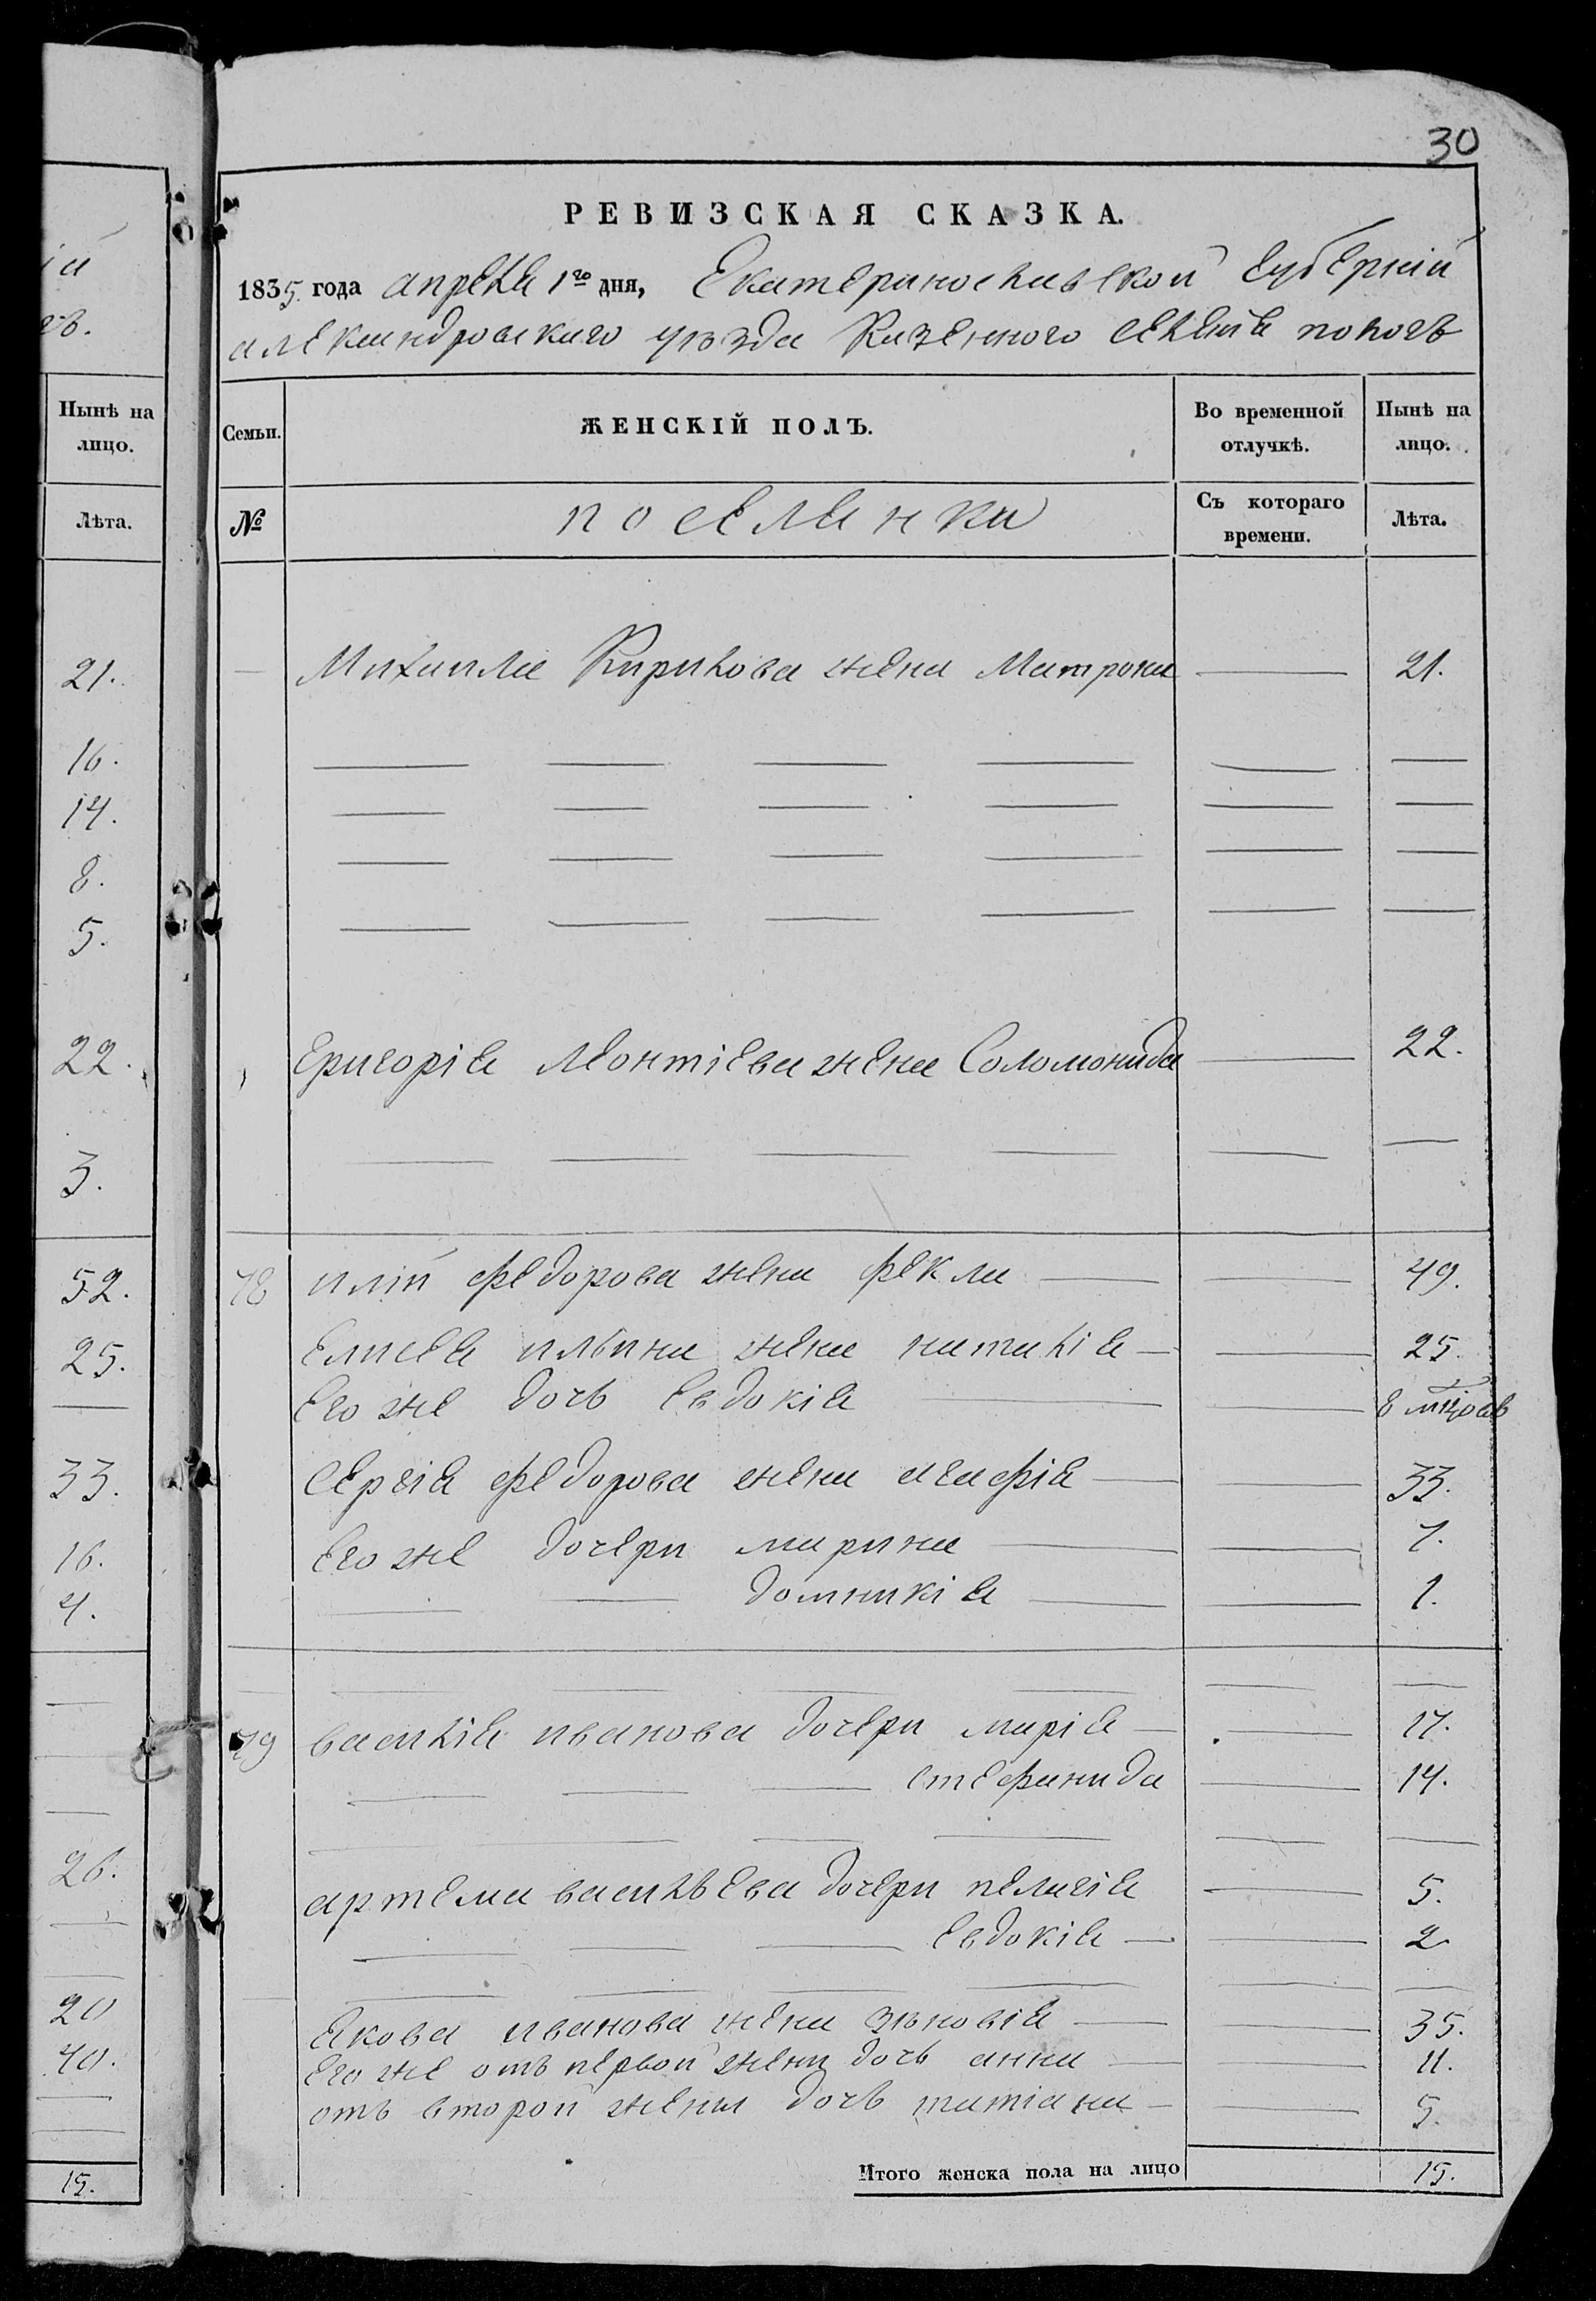 30
РЕВИЗСКАЯ СКАЗКА.
1835 года апреля 1го дня, Екатеринославской губерніи
александровскаго уѣзда Казенного селенія пологъ
Семьи.
ЖЕНСКІЙ ПОЛЪ.
Во временной отлучкѣ.
Нынѣ на лицо.
№
поселянки
Съ котораго времени.
Лѣта.
Михаила Кирилова жена Матрона 21.
Григорія Леонтіева жена Соломонида 22.
78 иліи федорова жена фекла 49.
Елисея ильина жена наталія 25.
Его же дочь Евдокія 8 мцовъ
Сергія федорова жена агафія 33.
Его же дочери марина 7.
домникія 1.
79 василія иванова дочери марія 17.
стефанида 14.
артема васильева дочери пелагія 5.
Евдокія 2
Якова иванова жена зѣновія 35.
Его же отъ первой жены дочь анна 11.
отъ второй жены дочь татіана 5.
Итого женска пола на лицо 15.
Нынѣ на лицо.
Лѣта.
21.
16.
14.
8.
5.
22.
3.
52.
25.
33.
16.
4.
26.
20
40.
15.